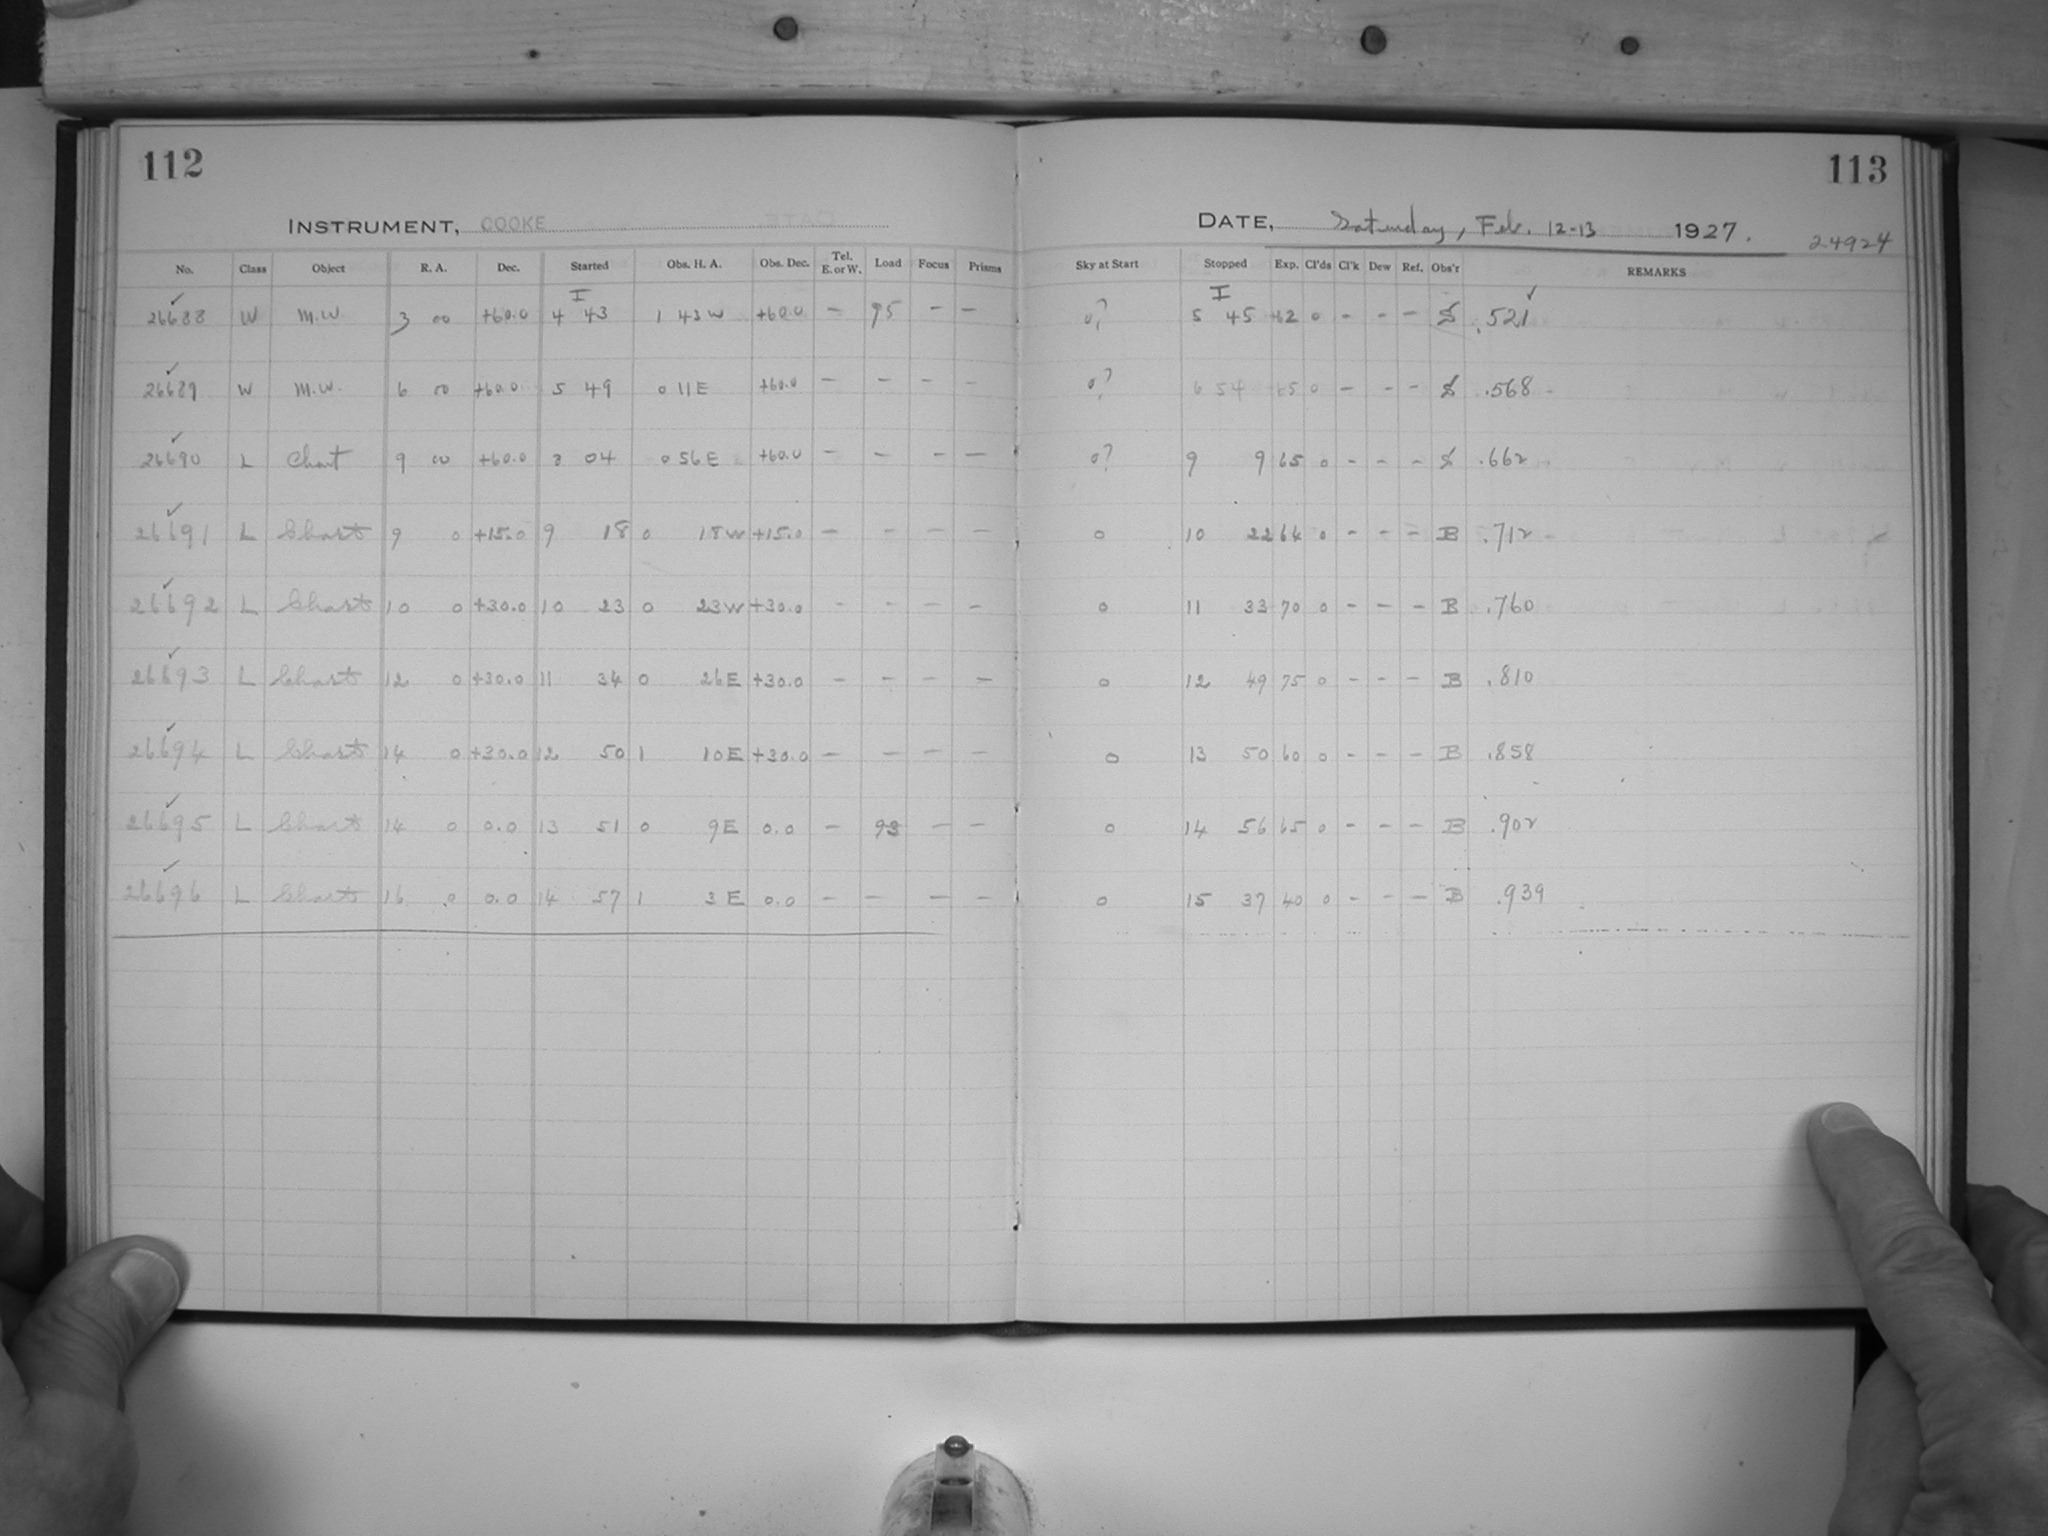 112
113
INSTRUMENT, COOKE
DATE, Saturday, Feb. 12-13 1927.
24924
No. Class Object R. A. Dec. Started Obs. H. A. Obs. Dec. Tel. E. or W. Load Focus Prisms Sky at Start Stopped Exp. Cl'ds Cl'k Dew Ref. Obs'r REMARKS
I I
26688 W M.W. 3 00 +60.0 4 43 1 43 W +60.0 – 95 – – 0? 5 45 62 0 - - - .521
26689 W M.W. 6 00 +60.0 5 49 0 11 E +60.0 – – – – 0? 6 54 65 0 – - - .568
26690 L Chart 9 00 +60.0 8 04 0 56 E +60.0 – – – – 0? 9 9 65 0 - - - .662
26691 L Chart 9 0 +15.0 9 18 0 18 W +15.0 – – – – 0 10 22 64 0 - - - B .712
26692 L Chart 10 0 +30.0 10 23 0 23 W +30.0 – – – – 0 11 33 70 0 - - - B .760
26693 L Chart 12 0 +30.0 11 34 0 26 E +30.0 – – – – 0 12 49 75 0 - - - B .810
26694 L Chart 14 0 +30.0 12 50 1 10 E +30.0 – – – – 0 13 50 60 0 - - - B .858
26695 L Chart 14 0 0.0 13 51 0 9 E 0.0 – 93 – – 0 14 56 65 0 - - - B .902
26696 L Chart 16 0 0.0 14 57 1 3 E 0.0 – – – – 0 15 37 40 0 - - - B .939